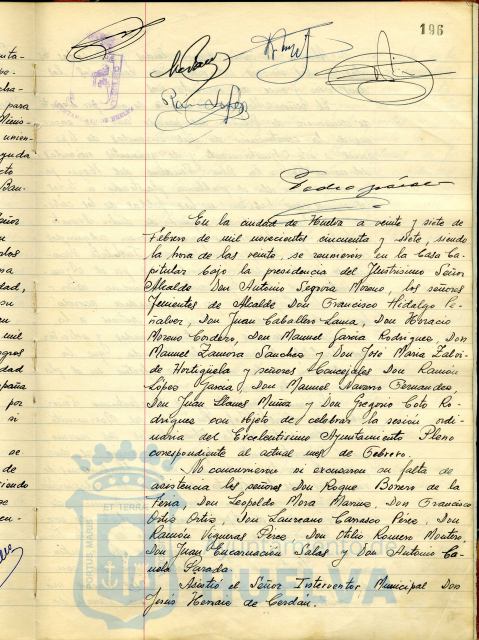 196
En la ciudad de Huelva a veinte y siete de
Febrero de mil novecientos cincuenta y siete, siendo
la hora de las veinte, se reunieron en la Casa Ca-
pitular bajo la presidencia del Ilustrísimo Señor
Alcalde Don Antonio Segovia Moreno, los señores
Tenientes de Alcalde Don Francisco Hidalgo Pe-
ñalver, Don Juan Caballero Lama, Don Horacio
Moreno Cordero, Don Manuel Garcia Rodriguez, Don
Manuel Zamora Sanchez y Don José Maria
de Hortigüela y señores Concejales Don Ramón
López Garcia, Don Manuel Navarro Fernandez,
Don Juan Llanes Muñoz y Don Gregorio Coto Ro-
driguez con objeto de celebrar la sesión ordi-
naria del Excelentísimo Ayuntamiento Pleno
correspondiente al actual mes de Febrero.
No concurrieron ni excusaron su falta de
asistencia los señores Don Roque Borrero de la
Feria, Don Leopoldo Mora Don Francisco
Ortiz Ortiz, Don Laureano Carrasco Perez, Don
Ramón Vigueras Perez, Don Otilio Romero Montero,
Don Juan Encarnación Salas y Don Antonio Ca-
Parada.
Asistió el Señor Interventor Municipal Don
Jesús de Cerdán.